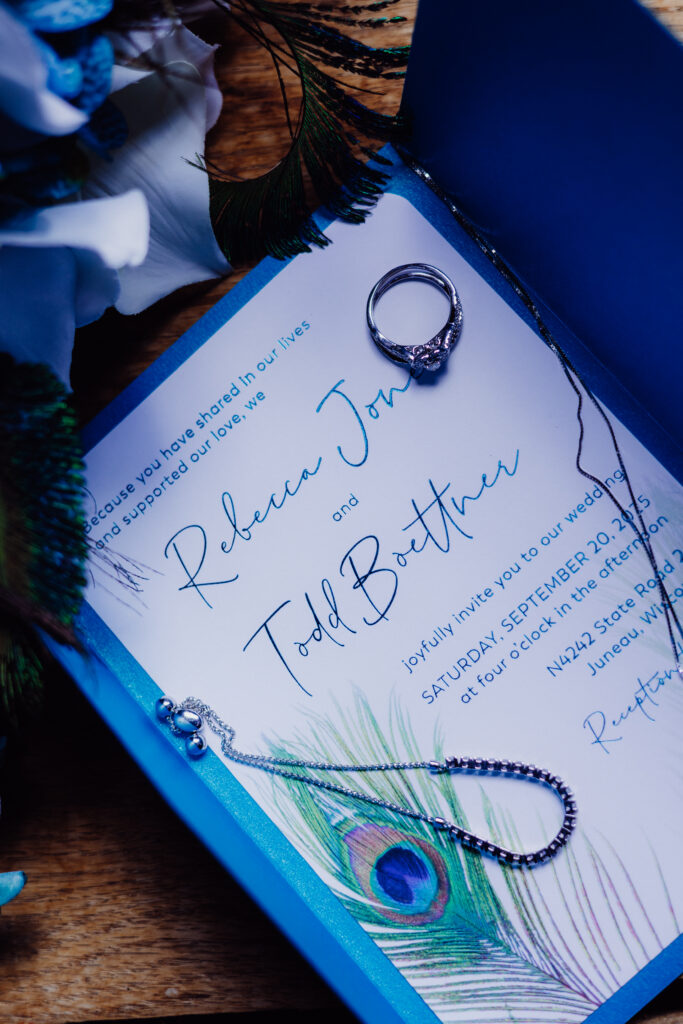 Because you have shared in our lives
and supported our love, we
Rebecca Jon
and
Todd Boettner
joyfully invite you to our wedding
SATURDAY, SEPTEMBER 20, 2025
at four o'clock in the afternoon
N4242 State Road
Juneau,
Reception